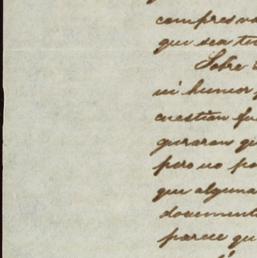 compres
que sea
Sobre
mi humor
cuestión
guraran
pero no
que alguna
document
parece qu